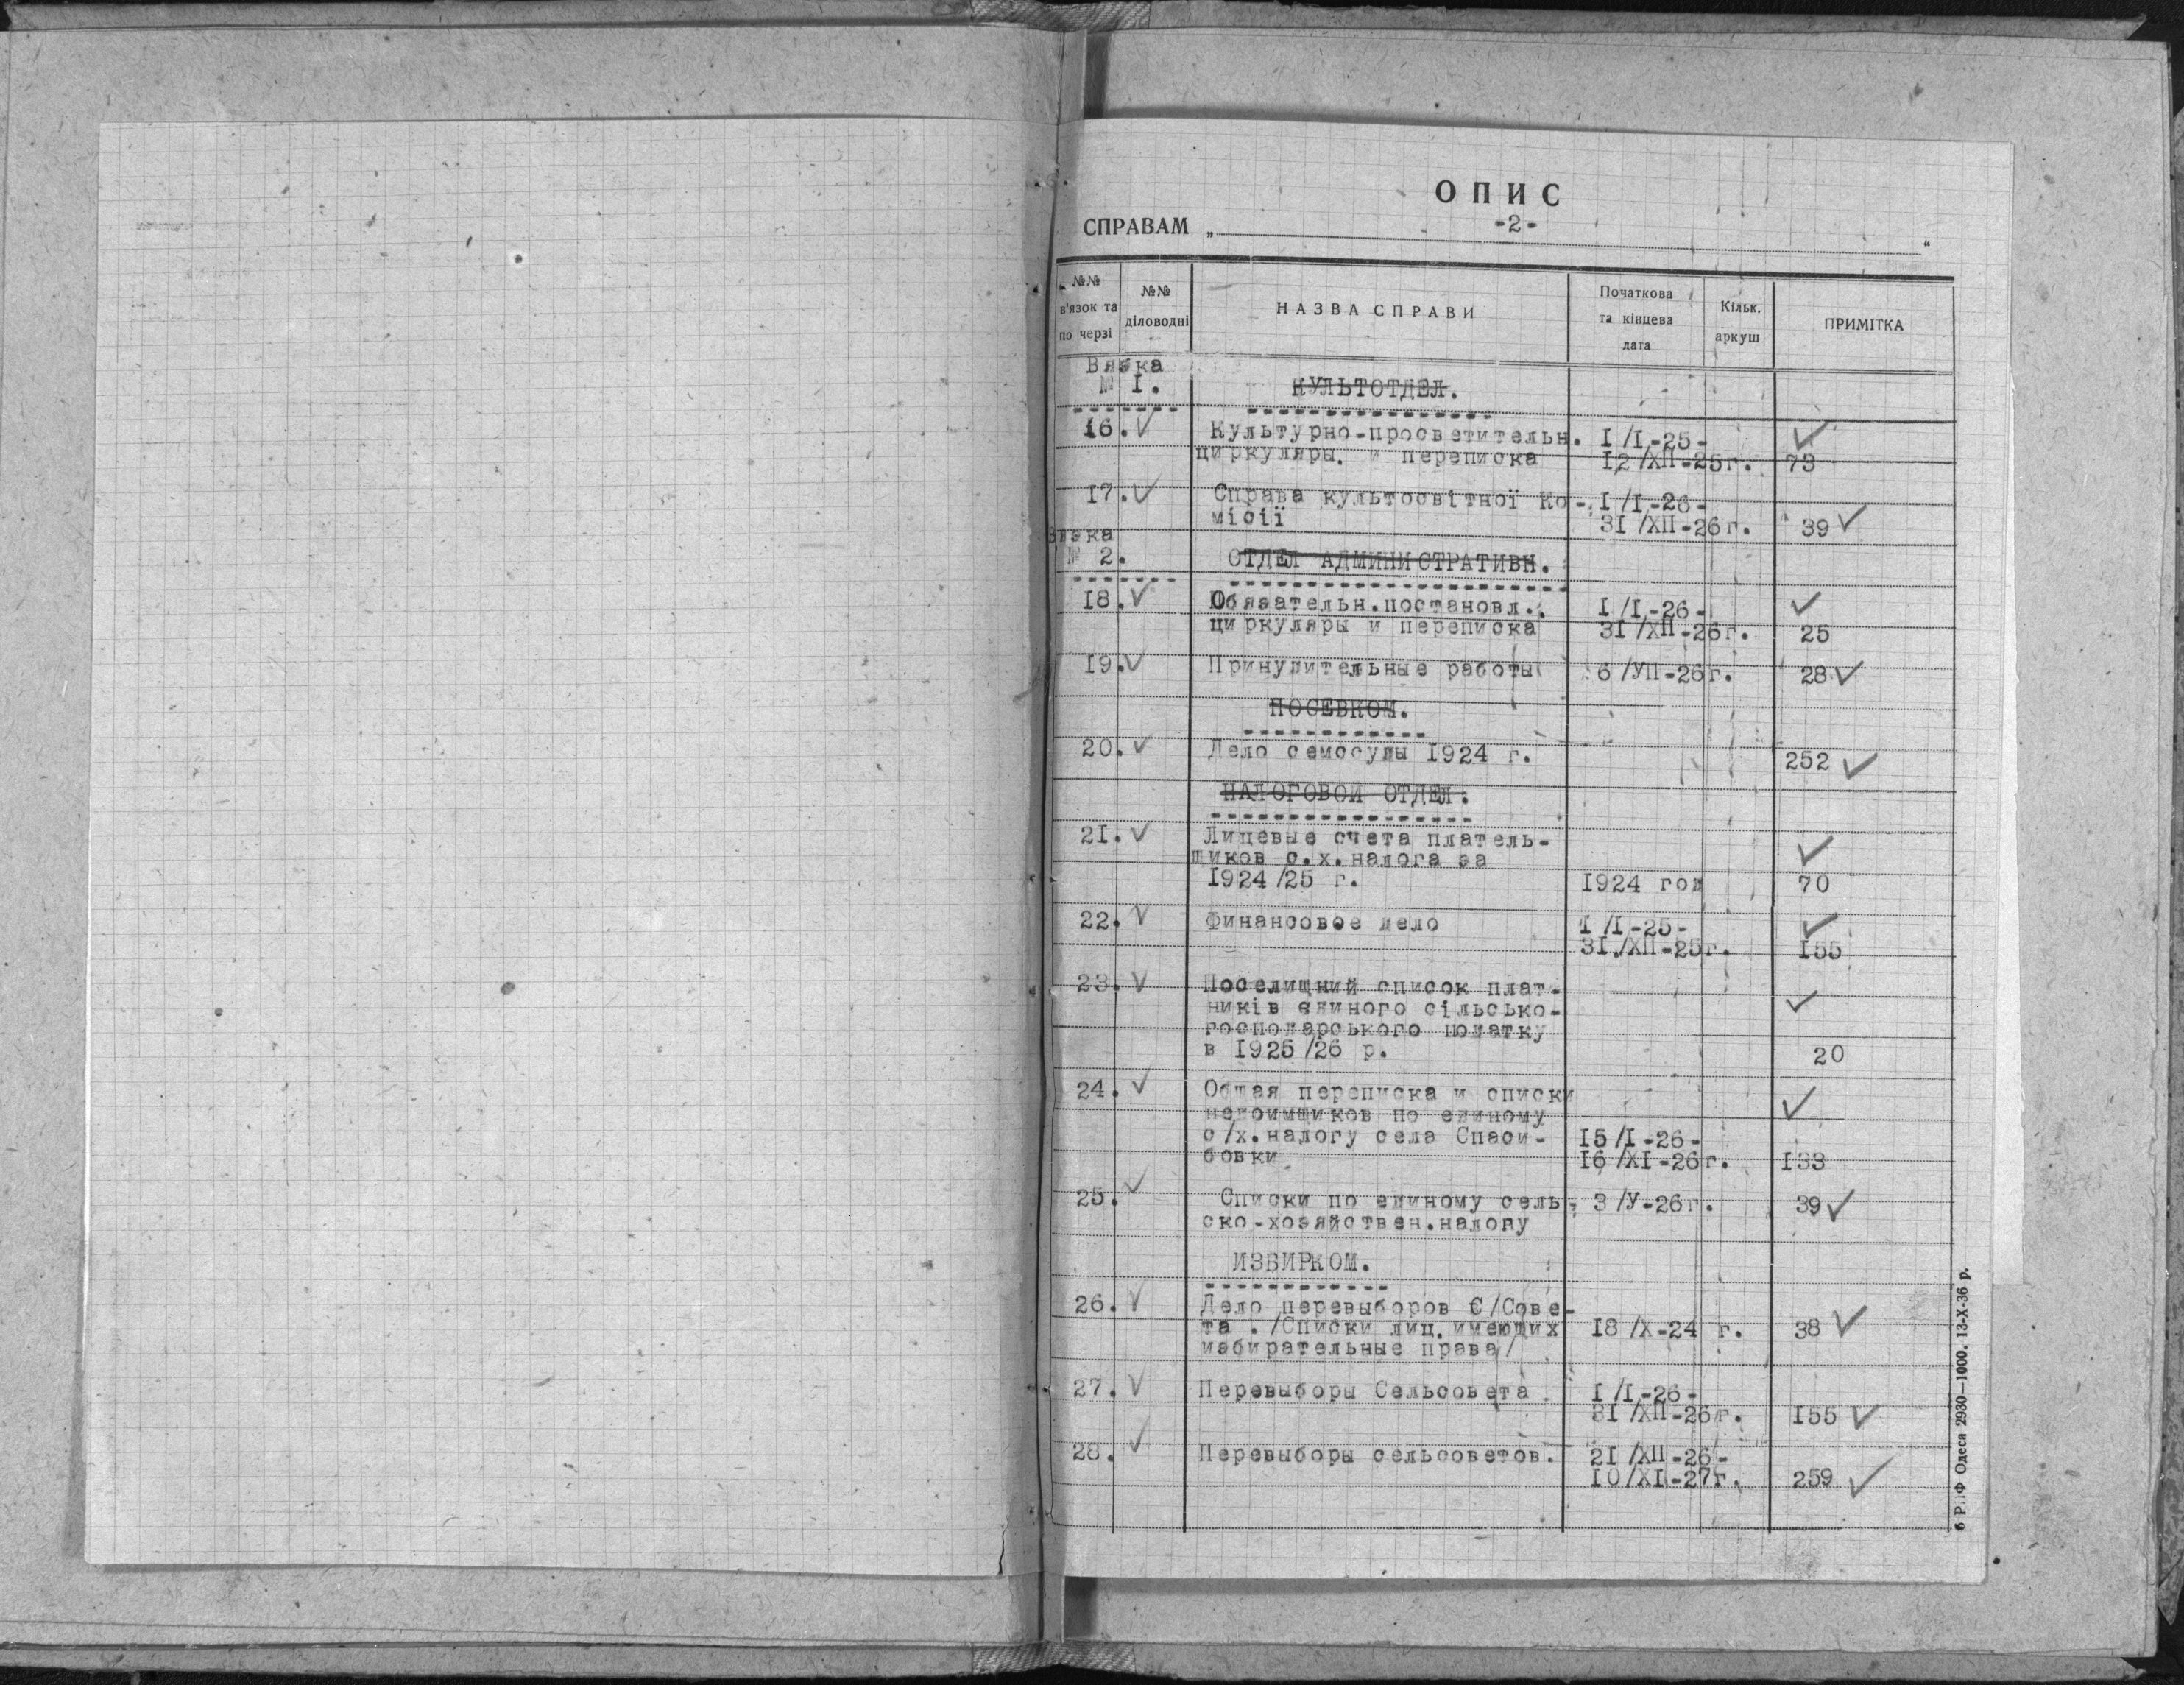 ОПИС
СПРАВАМ „ -2- “
№№ в'язок та по черзі
№№ діловодні
НАЗВА СПРАВИ
Початкова та кінцева дата
Кільк. аркуш
ПРИМІТКА
Вязка
№ I.
КУЛЬТОТДЕЛ.
16. Культурно-просветительн. I/I-25-
циркуляры. и переписка 12/XII-25г. 73
17. Справа культосвітної Ко- I/I-26-
місії 31/XII-26г. 39
Вязка
№ 2.
ОТДЕЛ АДМИНИСТРАТИВН.
18. Обязательн.постановл.. I/I-26-
циркуляры и переписка 31/XII-26г. 25
19. Принудительные работы 6/УII-26г. 28
ПОСЕВКОМ.
20. Дело семссуды 1924 г. 252
НАЛОГОВОЙ ОТДЕЛ.
21. Лицевые счета платель-
щиков с.х.налога за
1924/25 г. 1924 год 70
22. Финансовое дело I/I-25-
31./XII-25г. 155
23. Поселищний список плат-
ників єдиного сільсько-
господарського податку
в 1925/26 р. 20
24. Общая переписка и списки
недоимщиков по единому
с/х.налогу села Спаси- 15/I-26-
бовки 16/XI-26г. 133
25. Списки по единому сель- 3/У-26г. 39
ско-хозяйствен.налогу
ИЗБИРКОМ.
26. Дело перевыборов С/Сове-
та ./Списки лиц, имеющих 18/X-24 г. 38
избирательные права/
27. Перевыборы Сельсовета I/I-26-
31/XII-26г. 155
28. Перевыборы сельсоветов. 21/XII-26-
10/XI-27г. 259
Одеса 2930—1000. 13-X-36 р.